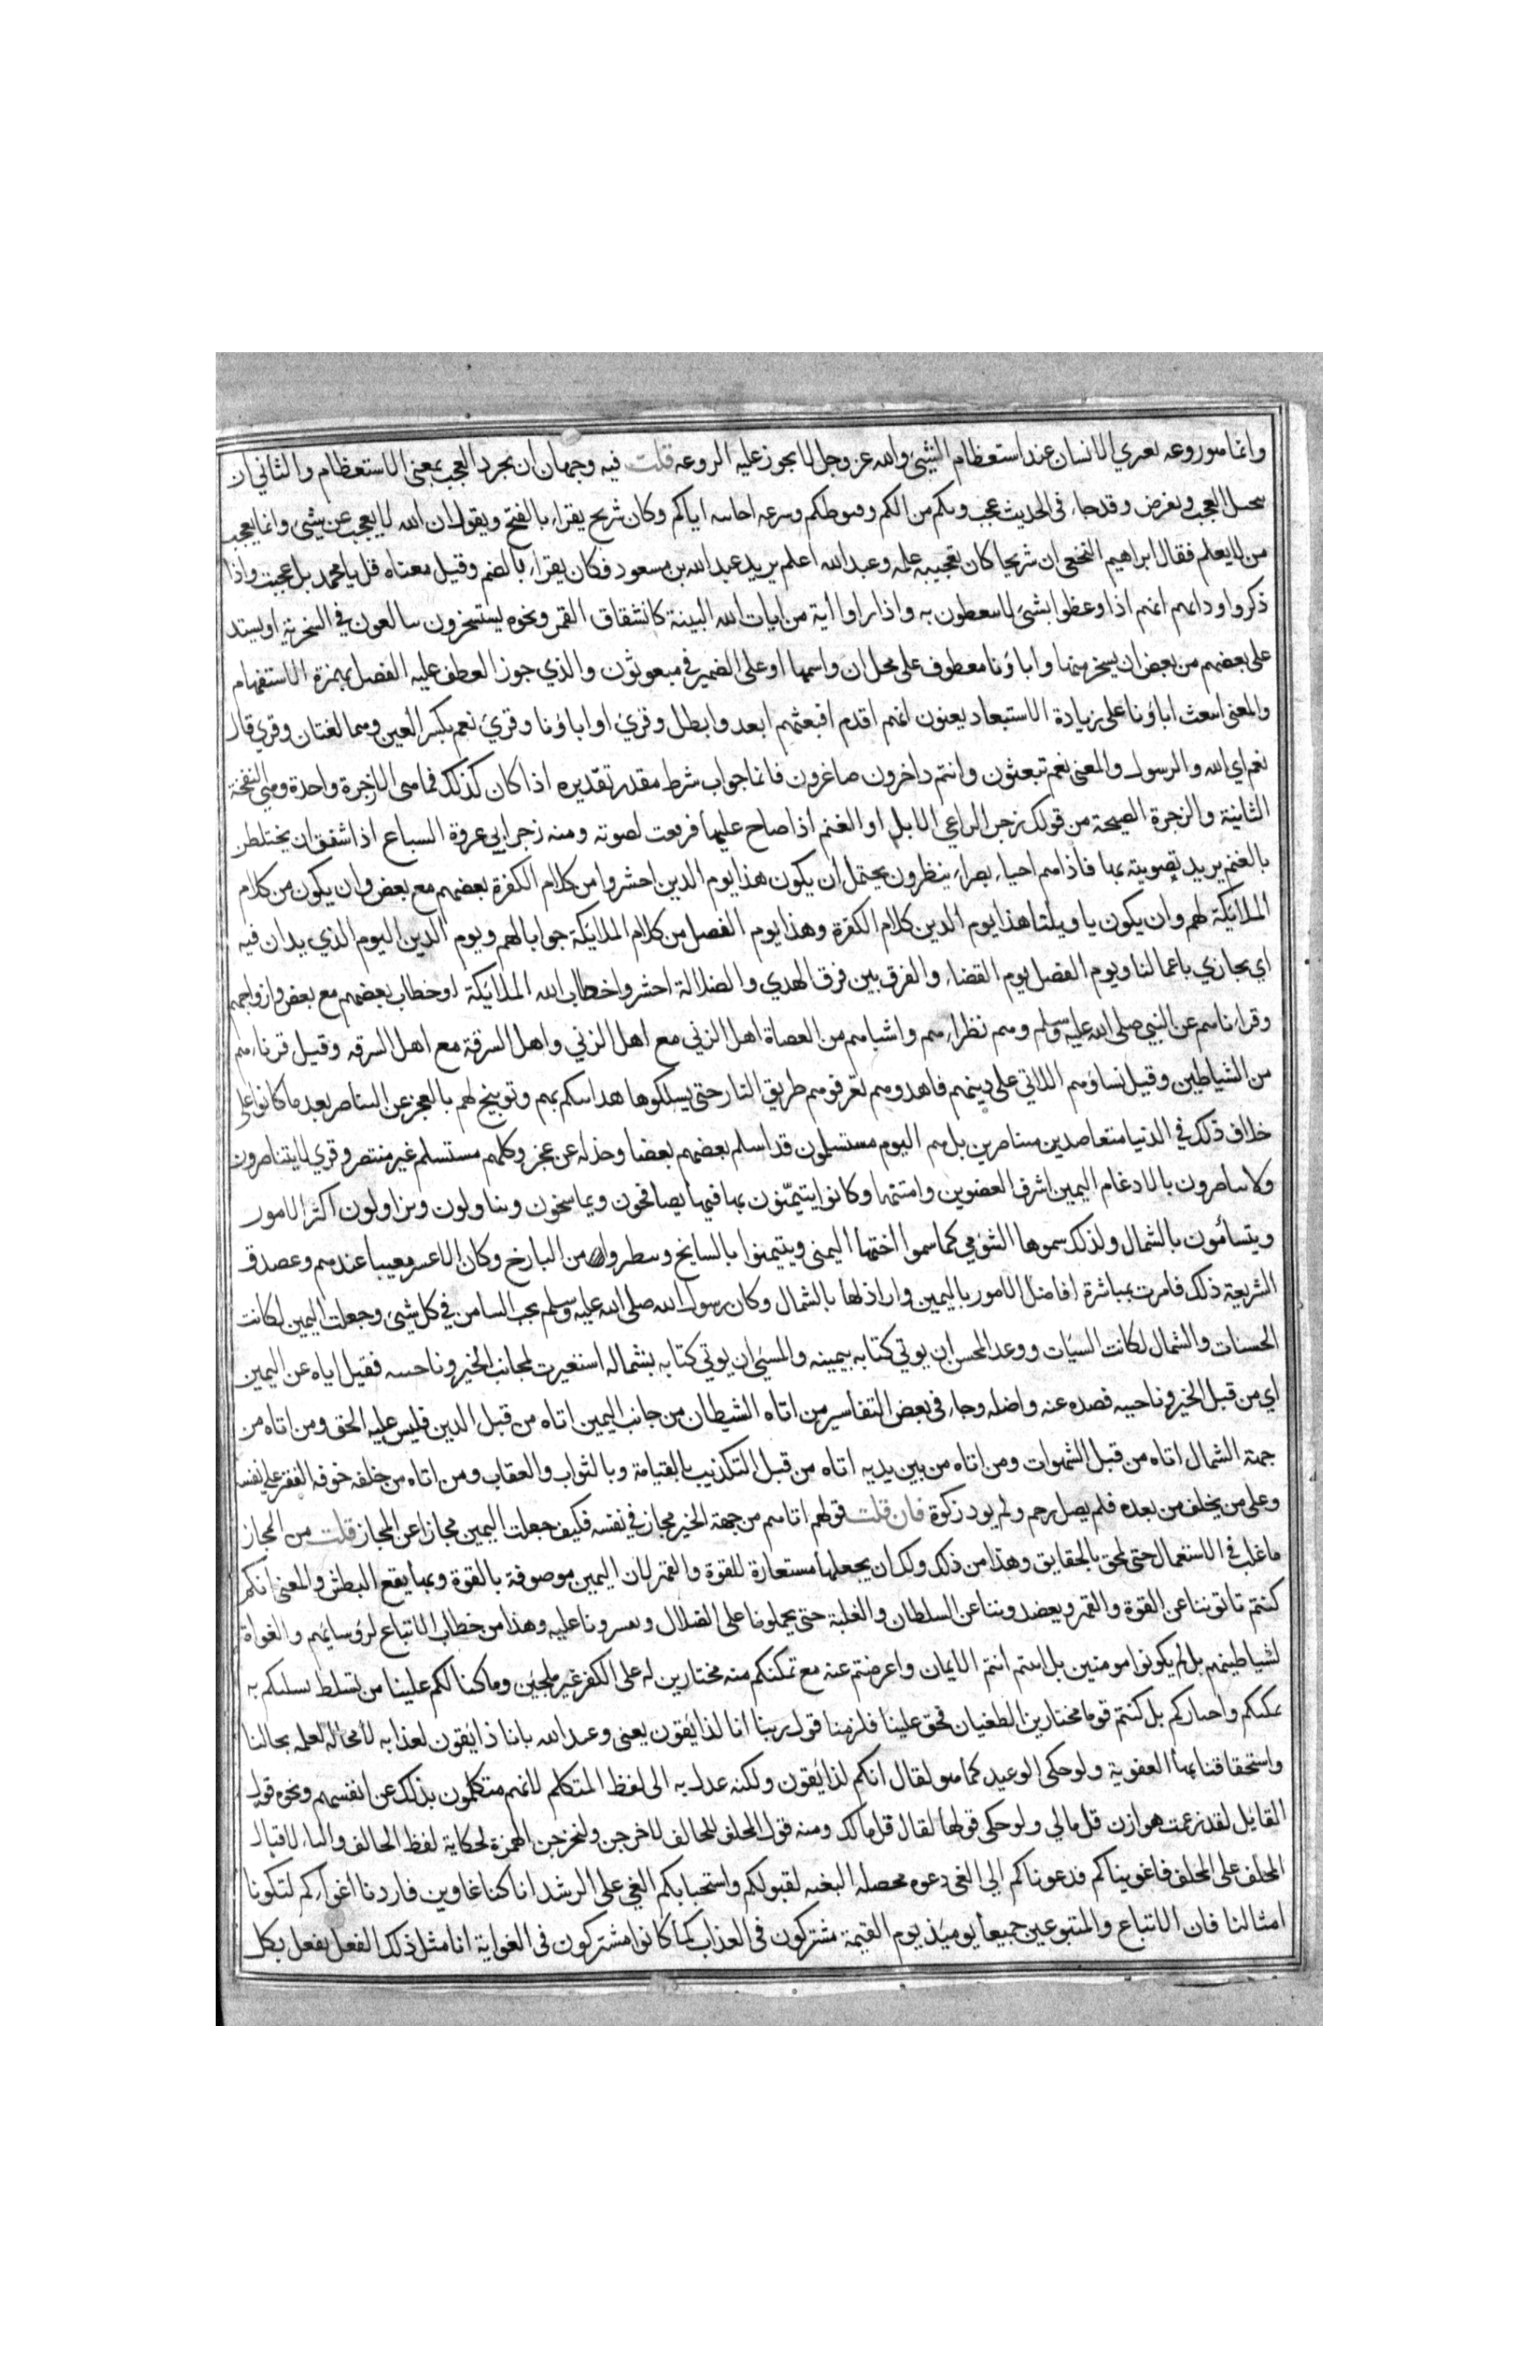 وانما هو روعه تعري الانسان عند استعظام الشيئ والله عز وجل لا يجوز عليه الروعه قلت فيه وجهان ان يجرد العجب بمعنى الاستعظام والثاني ان
العجب ويفرض وقد جاء في الحديث عجب ربكم من الكم وقنوطكم وسرعه اجابته اياكم وكان شريح يقراء بالفتح ويقول ان الله لا يعجب عن شيئ وانما يعجب
من لا يعلم فقال ابراهيم النخعي ان شريحا كان يعجبه علمه وعبد الله اعلم يريد عبد الله بن مسعود فكان يقراء بالضم وقيل معناه قل يا محمد بل عجبت واذا
ذكروا ودابهم انهم اذا وعظوا بشئ لا يتعظون به واذا راوا اية من ايات الله البينة كانشقاق القمر ونحوه يستسخرون يبالغون في السخرية او يستدعي
على بعضهم من بعض ان يسخر منها واباؤنا معطوف على محل ان واسمها او على الضمير في مبعوثون والذي جوز العطف عليه الفصل بهمزة الاستفهام
والمعنى ايبعث اباؤنا على زيادة الاستبعاد يعنون انهم اقدم فبعثهم ابعد وابطل وقرئ او اباؤنا وقرئ نعم بكسر العين وهما لغتان وقري قال
نعم اي الله والرسول والمعنى نعم تبعثون وانتم داخرون صاغرون فانما جواب شرط مقدر تقديره اذا كان كذلك فما هي الا زجرة واحدة وهي النفخة
الثانية والزجرة الصيحة من قولك زجر الراعي الابل او الغنم اذا صاح عليها فريعت لصوته ومنه زجر ابي عروة السباع اذا اشفق ان يختلطن
بالغنم يريد تصويته بها فاذا هم احياء بصراء ينظرون يحتمل ان يكون هذا يوم الدين احشروا من كلام الكفرة بعضهم مع بعض وان يكون من كلام
الملائكة لهم وان يكون يا ويلنا هذا يوم الدين كلام الكفرة وهذا يوم الفصل من كلام الملائكة جوابا لهم ويوم الدين اليوم الذي يدان فيه
اي يجازي باعمالنا ويوم الفصل يوم القضاء والفرق بين فرق الهدي والضلالة احشروا خطاب الله الملائكة او خطاب بعضهم مع بعض وازواجهم
وقرناءهم عن النبي صلى الله عليه وسلم وهم نظراءهم واشباههم من العصاة اهل الزني مع اهل الزني واهل السرقة مع اهل السرقه وقيل قرناءهم
من الشياطين وقيل نساؤهم اللاتي على دينهم فاهدوهم فعرفوهم طريق النار حتى يسلكوها هذا تهكم بهم وتوبيخ لهم بالعجز عن التناصر بعد ما كانوا على
خلاف ذلك في الدنيا متعاضدين متناصرين بل هم اليوم مستسلمون قد اسلم بعضهم بعضا وخذله عن عجز وكلهم مستسلم غير منتصر وقري لا يتناصرون
ولا تناصرون بالادغام اليمين اشرف العضوين وامتنها وكانوا يتيمنون بها فيها يصافحون ويماسحون ويناولون ويزاولون اكثر الامور
ويتشأمون بالشمال ولذلك سموها الشؤمي كما سموا اختها اليمنى ويتيمنوا بالسانح وتطيروا من البارح وكان الاعسر معيبا عندهم وعضدت
الشريعة ذلك فامرت بمباشرة افاضل الامور باليمين واراذلها بالشمال وكان رسول الله صلى الله عليه وسلم يحب التيامن في كل شيئ وجعلت اليمين لكاتب
الحسنات والشمال لكاتب السيئات ووعد المحسن ان يوتي كتابه بيمينه والمسئ ان يوتي كتابه بشماله استعيرت لجانب الخير وناحيته فقيل اتاه عن اليمين
اي من قبل الخير وناحيته فصده عنه واضله وجاء في بعض التفاسير من اتاه الشيطان من جانب اليمين اتاه من قبل الدين فلبس عليه الحق ومن اتاه من
جهة الشمال اتاه من قبل الشهوات ومن اتاه من بين يديه اتاه من قبل التكذيب بالقيامة وبالثواب والعقاب ومن اتاه من خلفه خوفه الفقر على نفسه
وعلى من يخلف من بعده فلم يصل رحم ولم يود زكوة فان قلت قولهم اتاهم من جهة الخير مجاز في نفسه فكيف جعلت اليمين مجازا عن المجاز قلت من المجاز
ما غلب في الاستعمال حتى لحق بالحقايق وهذا من ذلك ولك ان يجعلها مستعارة للقوة والقهر لان اليمين موصوفة بالقوة وبها يقع البطش والمعنى انكم
كنتم تاتوننا عن القوة والقهر ويعضدوننا عن السلطان والغلبة حتى يحملونا على الضلال وتقسرونا عليه وهذا من خطاب الاتباع لرؤسائهم والغواة
لشياطينهم بل لم يكونوا مومنين بل ابيتم انتم الايمان واعرضتم عنه مع تمكنكم منه مختارين له على الكفر غير ملجئين وما كنا لكم علينا من تسلط نسلبكم به
تمكنكم واختياركم بل كنتم قوما مختارين الطغيان فحق علينا فلزمنا قول ربنا انا لذائقون يعني وعيد الله بانا ذائقون لعذابه لا محالة لعلمه بحالنا
واستحقاقنا بها العقوبة ولو حكى الوعيد كما هو لقال انكم لذائقون ولكنه عدل به الى لفظ المتكلم لانهم متكلمون بذلك عن انفسهم ونحوه قول
القايل لقد زعمت هوازن قل مالي ولو حكى قولها لقال قل مالك ومنه قول المحلف للحالف لاخرجن ولتخرجن الهمزة لحكاية لفظ الحالف والتاء لاقبال
المحلف على المحلف فاغويناكم فدعوناكم الي الغي دعوه محصله البغيه لقبولكم واستحبابكم الغي على الرشد انا كنا غاوين فاردنا اغواءكم لتكونا
امثالنا فان الاتباع والمتبوعين جميعا يومئذ يوم القيمة مشتركون في العذاب كما كانوا مشتركون في الغواية انا مثل ذلك الفعل نفعل بكل